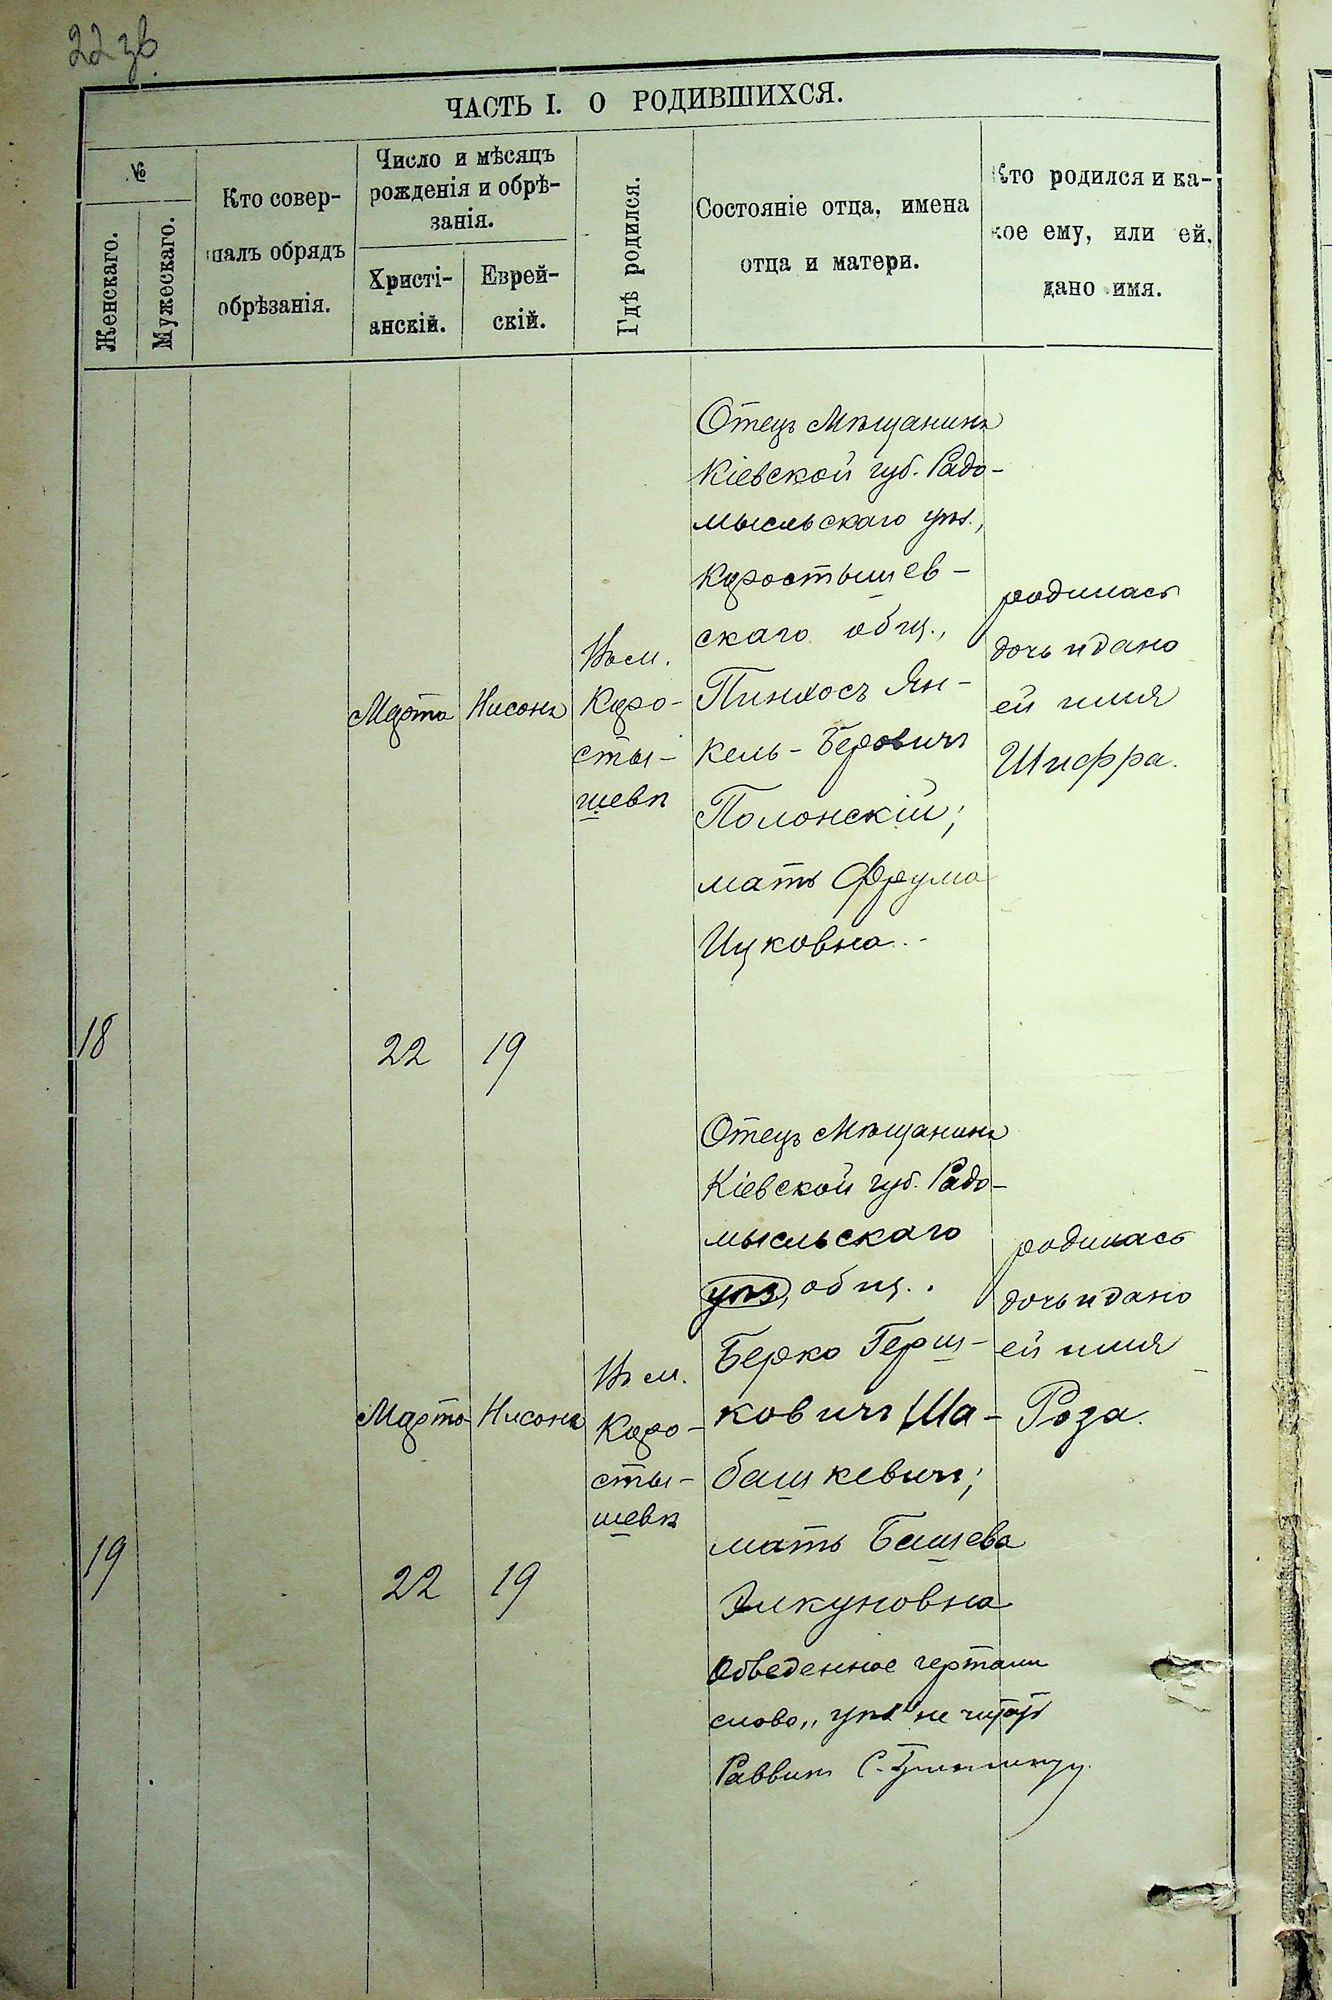 22 зв
ЧАСТЬ I. О РОДИВШИХСЯ.
№
Женскаго.
Мужескаго.
Кто совер-
шалъ обрядъ
обрѣзанія.
Число и мѣсяцъ
рожденія и обрѣ-
занія.
Христі-
анскій.
Еврей-
скій.
Гдѣ родился.
Состояніе отца, имена
отца и матери.
Кто родился и ка-
кое ему, или ей,
дано имя.
18
Марта
22
Нисона
19
Въ м.
Коро-
сты-
шевѣ
Отецъ Мѣщанинъ
Кіевской губ. Радо-
мысльскаго уѣз.,
Коростышев-
скаго общ.,
Пинхосъ Ян-
кель-Беровичъ
Полонскій;
мать Фрума
Ицковна.
родилась
дочь и дано
ей имя
Шифра.
19
Марта
22
Нисона
19
Въ м.
Коро-
сты-
шевѣ
Отецъ Мѣщанинъ
Кіевской губ. Радо-
мысльскаго
уѣз, общ.
Берко Герш-
ковичъ Ша-
башкевичъ;
мать Башева
Элкуновна
Обведенное чертами
слово „уѣз" не читать
Раввинъ С.
родилась
дочь и дано
ей имя
Роза.